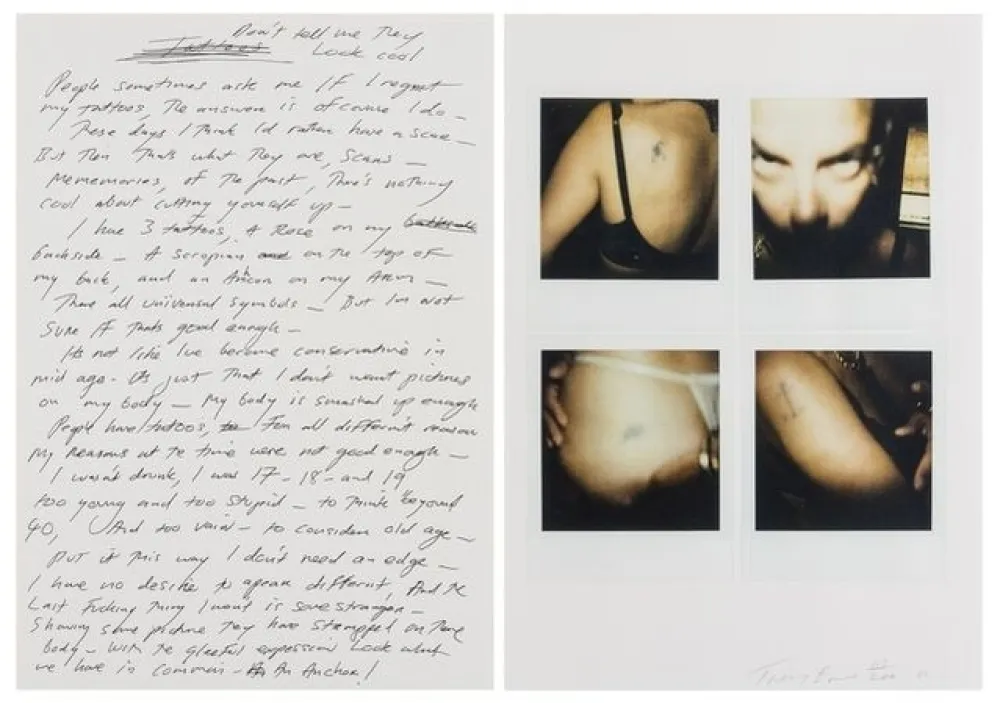 Don't tell me They
Tattoos Look cool
People sometimes ask me If I regret
my tattoos, The answer is of course I do -
These days I think I'd rather have a scar -
But Then Thats what They are, Scars -
Mememories, of The past, There's nothing
cool about cutting yourself up -
I have 3 tattoos, A Rose on my
backside - A scropian and on the top of
my back, and an Anchor on my Arm -
There all universal symbols - But Im not
Sure If Thats good enough -
Its not like Ive become conservative in
mid age - Its just That I don't want pictures
on my body - My body is smashed up enough
People have tattoos, For all different reasons
My Reasons at Te time were not good enough -
I wasn't drunk, I was 17 - 18 - and 19
too young and too Stupid - to Think beyond
40, And too vain - to consider old age -
Put it This way I don't need an edge -
I have no desire to apear different, And the
Last Fucking Thing I want is some stranger -
Showing some picture They have Stampped on There
body - With Te gleeful expression Look what
we have in common - An Anchor!
Tracey Emin